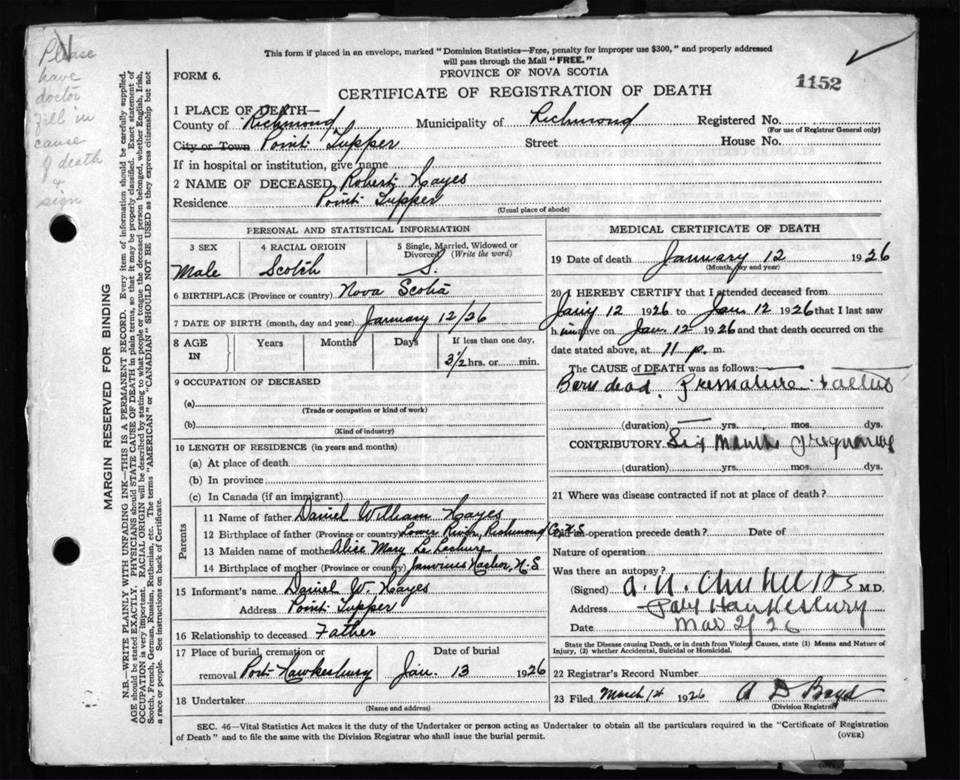 Please
have
doctor
fill in
cause
of death
&
sign
This form if placed in an envelope, marked "Dominion Statistics—Free, penalty for improper use $300," and properly addressed
will pass through the Mail "FREE."
FORM 6.
PROVINCE OF NOVA SCOTIA
1152
CERTIFICATE OF REGISTRATION OF DEATH
1 PLACE OF DEATH—
County of Richmond Municipality of Richmond Registered No.
(For use of Registrar General only)
City or Town Point Tupper Street House No.
If in hospital or institution, give name
2 NAME OF DECEASED Robert Hayes
Residence Point Tupper
(Usual place of abode)
MARGIN RESERVED FOR BINDING
N.B.—WRITE PLAINLY WITH UNFADING INK—THIS IS A PERMANENT RECORD. Every item of information should be carefully supplied.
AGE should be stated EXACTLY. PHYSICIANS should STATE CAUSE OF DEATH in plain terms, so that it may be properly classified. Exact statement of
OCCUPATION is very important. RACIAL ORIGIN will be described by stating to what people or tongue the deceased person belonged, whether English, Irish,
Scotch, French, German, Russian, Ruthenian, etc. The terms "AMERICAN" or "CANADIAN" SHOULD NOT BE USED as they express citizenship but not
a race or people. See instructions on back of Certificate.
PERSONAL AND STATISTICAL INFORMATION
3 SEX
Male
4 RACIAL ORIGIN
Scotch
5 Single, Married, Widowed or
Divorced (Write the word)
S.
6 BIRTHPLACE (Province or country) Nova Scotia
7 DATE OF BIRTH (month, day and year) January 12/26
8 AGE
IN
Years
Months
Days
If less than one day,
3½ hrs. or min.
9 OCCUPATION OF DECEASED
(a)
(Trade or occupation or kind of work)
(b)
(Kind of industry)
10 LENGTH OF RESIDENCE (in years and months)
(a) At place of death
(b) In province
(c) In Canada (if an immigrant)
Parents
11 Name of father Daniel William Hayes
12 Birthplace of father (Province or country) Lower River, Richmond Co. N.S.
13 Maiden name of mother Alice Mary Le
14 Birthplace of mother (Province or country) Janvrins Harbor, N.S
15 Informant's name Daniel W. Hayes
Address Point Tupper
16 Relationship to deceased Father
17 Place of burial, cremation or
removal Port Hawkesbury
Date of burial
Jan. 13 1926
18 Undertaker
(Name and address)
MEDICAL CERTIFICATE OF DEATH
19 Date of death January 12 1926
(Month, day and year)
20 I HEREBY CERTIFY that I attended deceased from
Jany 12 1926 to Jan. 12 1926 that I last saw
him alive on Jan. 12 1926 and that death occurred on the
date stated above, at 11 p. m.
The CAUSE OF DEATH was as follows:
Born dead. Premature
(duration) yrs. mos. dys.
CONTRIBUTORY Six Months Pregnancy
(duration) yrs. mos. dys.
21 Where was disease contracted if not at place of death?
Did an operation precede death? Date of
Nature of operation
Was there an autopsy?
(Signed) A. N. M.D.
Address Port Hawkesbury
Date Mar 2/26
State the Disease causing Death, or in death from Violent Causes, state (1) Means and Nature of
Injury, (2) whether Accidental, Suicidal or Homicidal.
22 Registrar's Record Number
23 Filed March 1st 1926 A D Boyd
(Division Registrar)
SEC. 46—Vital Statistics Act makes it the duty of the Undertaker or person acting as Undertaker to obtain all the particulars required in the "Certificate of Registration
of Death" and to file the same with the Division Registrar who shall issue the burial permit.
(OVER)